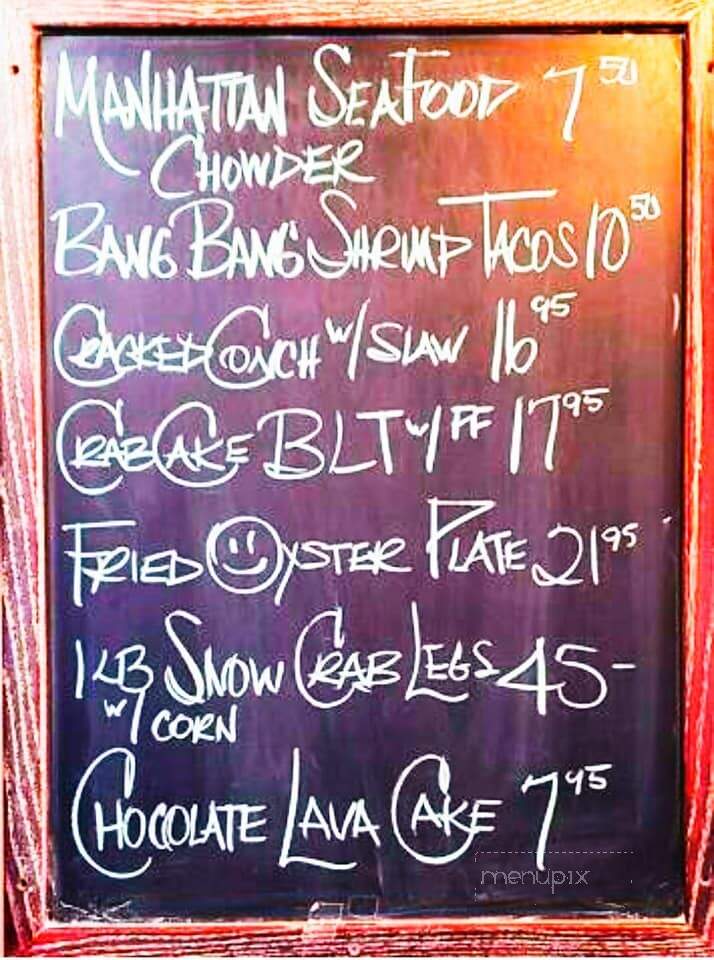 MANHATTAN SEAFOOD 7 50
CHOWDER
BANG BANG SHRIMP TACOS 10 50
CRACKED CONCH W/ SLAW 16 95
CRAB CAKE BLT W/ FF 17 95
FRIED OYSTER PLATE 21 95
1 LB SNOW CRAB LEGS 45-
W/ CORN
CHOCOLATE LAVA CAKE 7 95
menupix